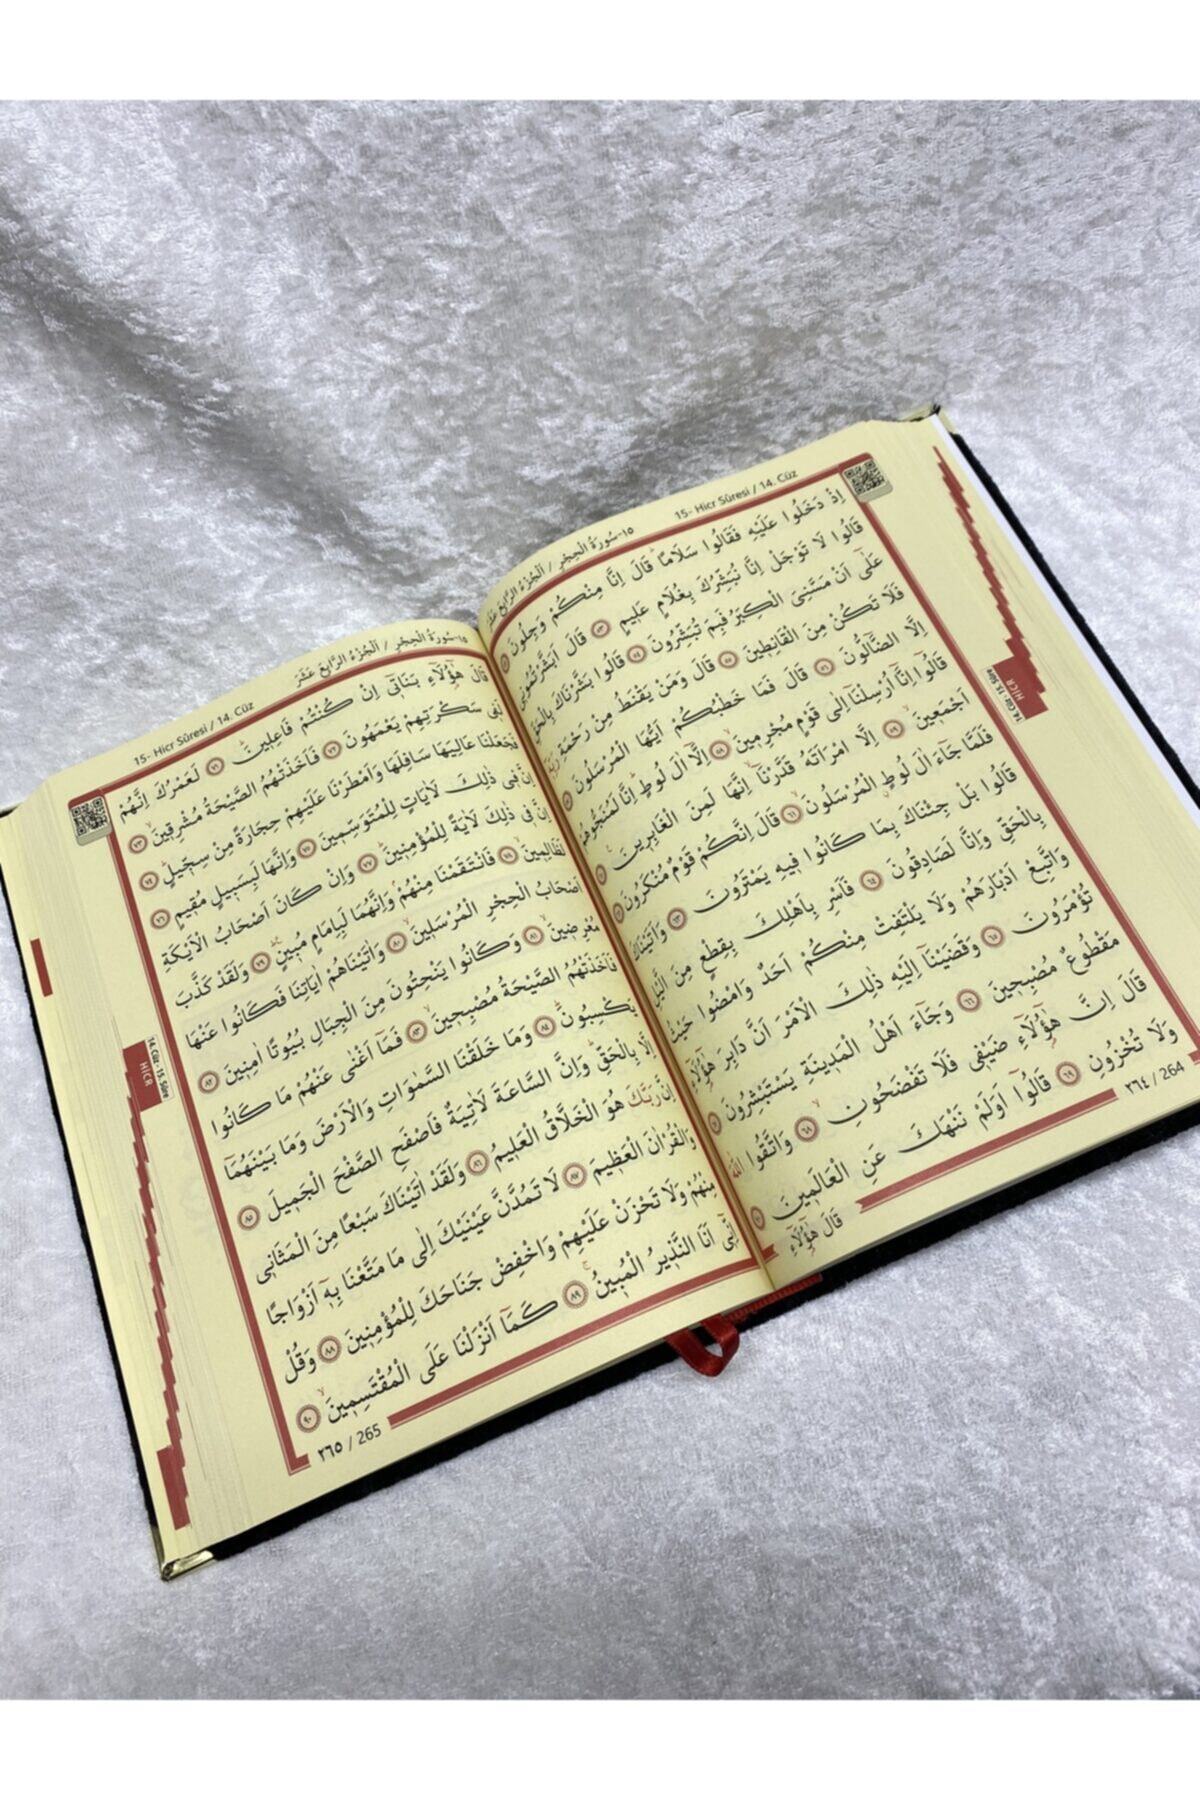 15- Hicr Sûresi / 14. Cüz
١٥-سُورَةُ الْحِجْرِ / اَلْجُزْءُ الرَّابِعَ عَشَرَ
اِذْ دَخَلُوا عَلَيْهِ فَقَالُوا سَلَامًاۜ قَالَ اِنَّا مِنْكُمْ وَجِلُونَ
قَالُوا لَا تَوْجَلْ اِنَّا نُبَشِّرُكَ بِغُلَامٍ عَلٖيمٍ ٥٣ قَالَ اَبَشَّرْتُمُونٖي
عَلٰٓى اَنْ مَسَّنِيَ الْكِبَرُ فَبِمَ تُبَشِّرُونَ ٥٤ قَالُوا بَشَّرْنَاكَ بِالْحَقِّ
فَلَا تَكُنْ مِنَ الْقَانِطٖينَ ٥٥ قَالَ وَمَنْ يَقْنَطُ مِنْ رَحْمَةِ رَبِّهٖٓ
اِلَّا الضَّٓالُّونَ ٥٦ قَالَ فَمَا خَطْبُكُمْ اَيُّهَا الْمُرْسَلُونَ
قَالُٓوا اِنَّٓا اُرْسِلْنَٓا اِلٰى قَوْمٍ مُجْرِمٖينَ ٥٨ اِلَّٓا اٰلَ لُوطٍۜ اِنَّا لَمُنَجُّوهُمْ
اَجْمَعٖينَ ٥٩ اِلَّا امْرَاَتَهُ قَدَّرْنَٓاۙ اِنَّهَا لَمِنَ الْغَابِرٖينَ
فَلَمَّا جَٓاءَ اٰلَ لُوطٍۨ الْمُرْسَلُونَ ٦١ قَالَ اِنَّكُمْ قَوْمٌ مُنْكَرُونَ
قَالُوا بَلْ جِئْنَاكَ بِمَا كَانُوا فٖيهِ يَمْتَرُونَ ٦٣ وَاَتَيْنَاكَ
بِالْحَقِّ وَاِنَّا لَصَادِقُونَ ٦٤ فَاَسْرِ بِاَهْلِكَ بِقِطْعٍ مِنَ الَّيْلِ
وَاتَّبِعْ اَدْبَارَهُمْ وَلَا يَلْتَفِتْ مِنْكُمْ اَحَدٌ وَامْضُوا حَيْثُ
تُؤْمَرُونَ ٦٥ وَقَضَيْنَٓا اِلَيْهِ ذٰلِكَ الْاَمْرَ اَنَّ دَابِرَ هٰٓؤُ۬لَٓاءِ
مَقْطُوعٌ مُصْبِحٖينَ ٦٦ وَجَٓاءَ اَهْلُ الْمَدٖينَةِ يَسْتَبْشِرُونَ
قَالَ اِنَّ هٰٓؤُ۬لَٓاءِ ضَيْفٖي فَلَا تَفْضَحُونِۙ ٦٨ وَاتَّقُوا اللّٰهَ
وَلَا تُخْزُونِ ٦٩ قَالُٓوا اَوَلَمْ نَنْهَكَ عَنِ الْعَالَمٖينَ
قَالَ هٰٓؤُ۬لَٓاءِ
٢٦٤ / 264
14. Cüz - 15. Sûre
HICR
15- Hicr Sûresi / 14. Cüz
١٥-سُورَةُ الْحِجْرِ / اَلْجُزْءُ الرَّابِعَ عَشَرَ
قَالَ هٰٓؤُ۬لَٓاءِ بَنَاتٖٓي اِنْ كُنْتُمْ فَاعِلٖينَۜ ٧١ لَعَمْرُكَ اِنَّهُمْ
لَفٖي سَكْرَتِهِمْ يَعْمَهُونَ ٧٢ فَاَخَذَتْهُمُ الصَّيْحَةُ مُشْرِقٖينَۙ ٧٣
فَجَعَلْنَا عَالِيَهَا سَافِلَهَا وَاَمْطَرْنَا عَلَيْهِمْ حِجَارَةً مِنْ سِجّٖيلٍۜ ٧٤
اِنَّ فٖي ذٰلِكَ لَاٰيَاتٍ لِلْمُتَوَسِّمٖينَ ٧٥ وَاِنَّهَا لَبِسَبٖيلٍ مُقٖيمٍ ٧٦
اِنَّ فٖي ذٰلِكَ لَاٰيَةً لِلْمُؤْمِنٖينَۜ ٧٧ وَاِنْ كَانَ اَصْحَابُ الْاَيْكَةِ
لَظَالِمٖينَۙ ٧٨ فَانْتَقَمْنَا مِنْهُمْۢ وَاِنَّهُمَا لَبِاِمَامٍ مُبٖينٍۜ ٧٩ وَلَقَدْ كَذَّبَ
اَصْحَابُ الْحِجْرِ الْمُرْسَلٖينَۙ ٨٠ وَاٰتَيْنَاهُمْ اٰيَاتِنَا فَكَانُوا عَنْهَا
مُعْرِضٖينَۙ ٨١ وَكَانُوا يَنْحِتُونَ مِنَ الْجِبَالِ بُيُوتًا اٰمِنٖينَ ٨٢
فَاَخَذَتْهُمُ الصَّيْحَةُ مُصْبِحٖينَۙ ٨٣ فَمَٓا اَغْنٰى عَنْهُمْ مَا كَانُوا
يَكْسِبُونَۜ ٨٤ وَمَا خَلَقْنَا السَّمٰوَاتِ وَالْاَرْضَ وَمَا بَيْنَهُمَٓا
اِلَّا بِالْحَقِّۜ وَاِنَّ السَّاعَةَ لَاٰتِيَةٌ فَاصْفَحِ الصَّفْحَ الْجَمٖيلَ ٨٥
اِنَّ رَبَّكَ هُوَ الْخَلَّاقُ الْعَلٖيمُ ٨٦ وَلَقَدْ اٰتَيْنَاكَ سَبْعًا مِنَ الْمَثَانٖي
وَالْقُرْاٰنَ الْعَظٖيمَ ٨٧ لَا تَمُدَّنَّ عَيْنَيْكَ اِلٰى مَا مَتَّعْنَا بِهٖٓ اَزْوَاجًا
مِنْهُمْ وَلَا تَحْزَنْ عَلَيْهِمْ وَاخْفِضْ جَنَاحَكَ لِلْمُؤْمِنٖينَ ٨٨ وَقُلْ
اِنّٖٓي اَنَا النَّذٖيرُ الْمُبٖينُۚ ٨٩ كَمَٓا اَنْزَلْنَا عَلَى الْمُقْتَسِمٖينَۙ ٩٠
٢٦٥ / 265
14. Cüz - 15. Sûre
HICR